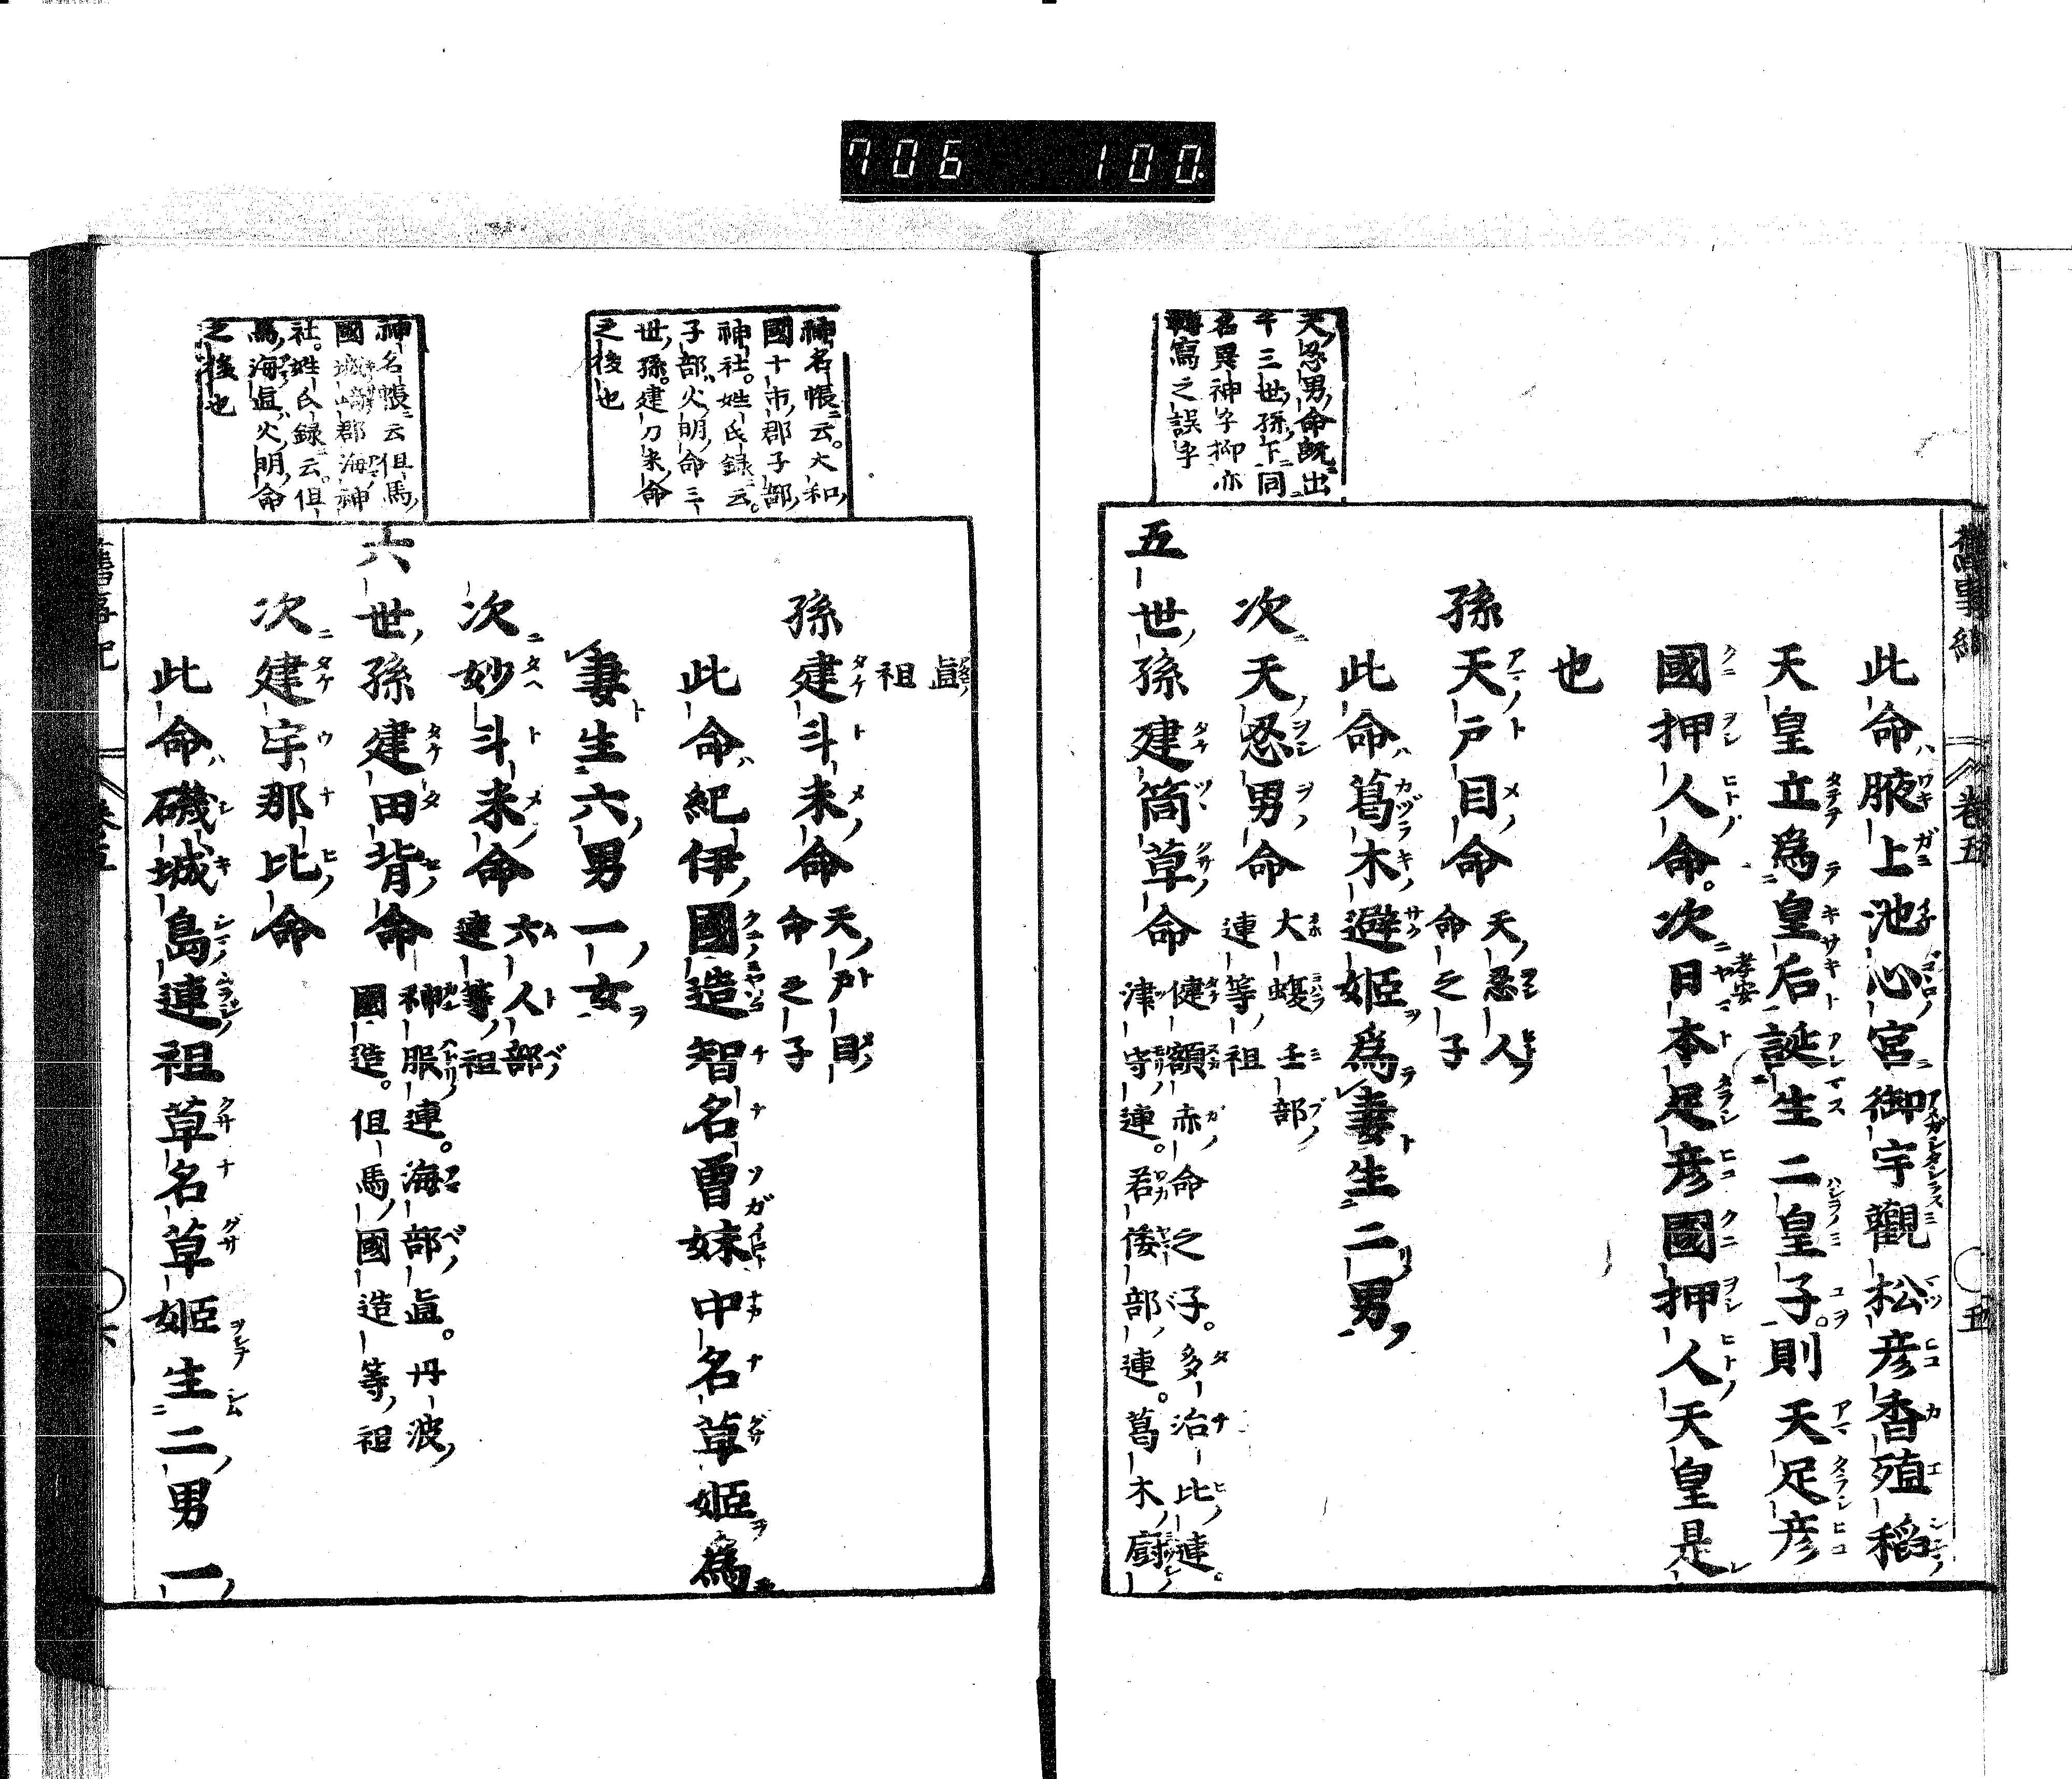 706 100.
天忍男命既出
名異神乎抑亦
轉寫之誤乎
舊事紀 卷五 五
此命腋上池心宮御宇觀松彦香殖稻
天皇立爲皇后誕生二皇子。則天足彦
國押人命。次日本足彦國押人天皇是
孝安
也
孫天戸目命 天忍人命之子
此命葛木避姫爲妻生二男
次天忍男命 大蝮壬部連等祖
五世孫建筒草命 健額赤命之子。多治比連。津守連。若倭部連。葛木厨
直祖
孫建斗米命 天戸目命之子
此命紀伊國造智名曽妹中名草姫爲
妻生六男一女
次妙斗米命 六人部連等祖
六世孫建田背命 神服連。海部直。丹波國造。但馬國造等祖
次建宇那比命
此命磯城島連祖草名草姫生二男一
神名帳云。大和
國十市郡子部
神社。姓氏録云。
子部火明命三
世孫。建刀米命
之後也
神名帳云但馬
國城崎郡海神
社。姓氏録云。但
馬海直火明命
之後也
舊事紀 卷五 六